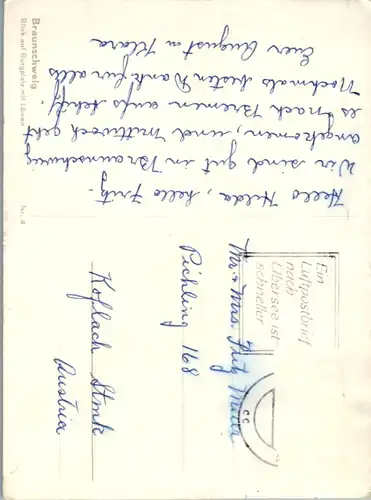 Braunschweig
Blick auf Burgplatz mit Löwen
Nr. 4
Hello Hilda, hello Fritz.
Wir sind gut in Braunschweig
angekomen, und Mittwoch geht
es nach Bremen aufs Schiff.
Nochmals besten Dank für alles
Euer August u Klara
Ein
Luftpostbrief
nach
Übersee ist
schneller
Mr. & Mrs. Fritz Meier
Pichling 168
Koflach Stmk
Austria